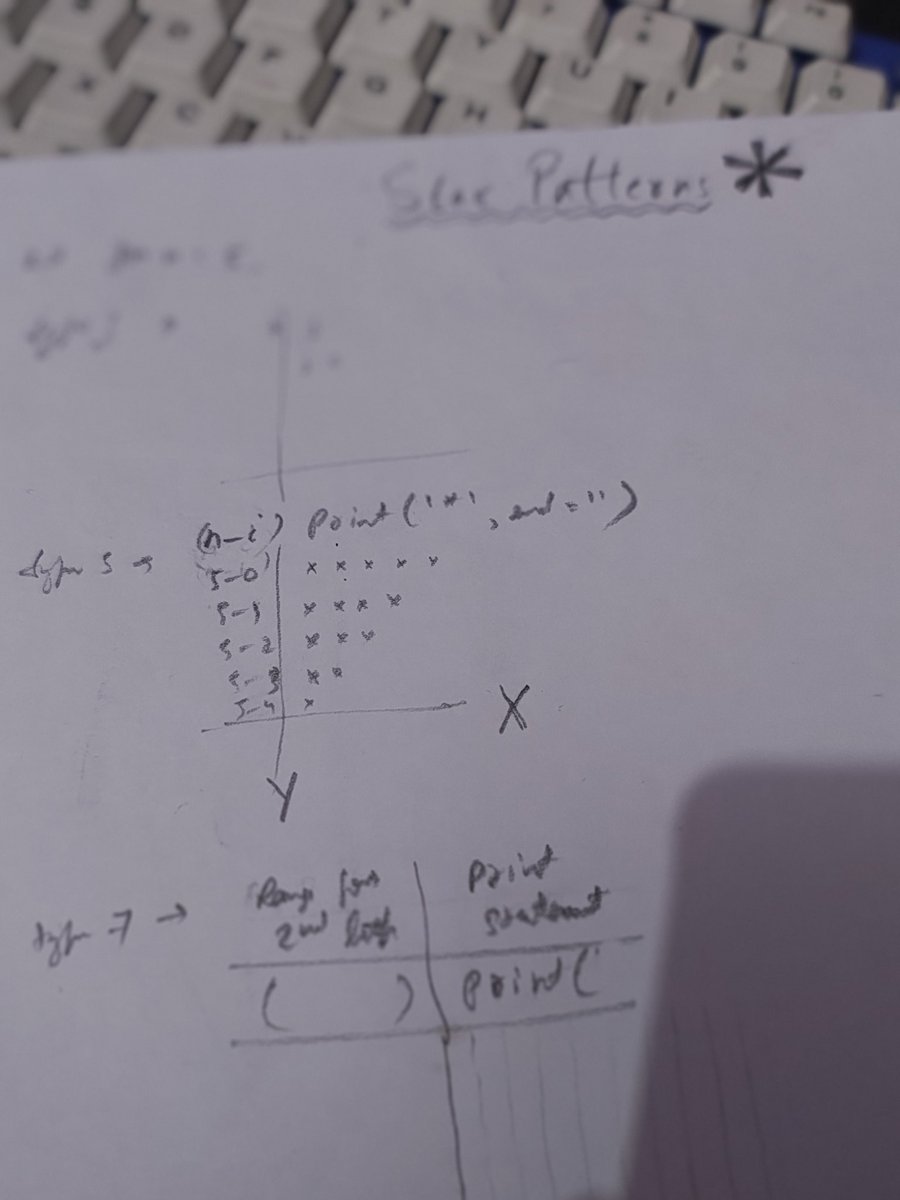 Star Patterns *
(n-i) Print('*', end='')
type 5 →
5-0 * * * * *
5-1 * * * *
5-2 * * *
5-3 * *
5-4 *
X
Y
type 7 →
Range for 2nd loop
Print statement
( ) Print('